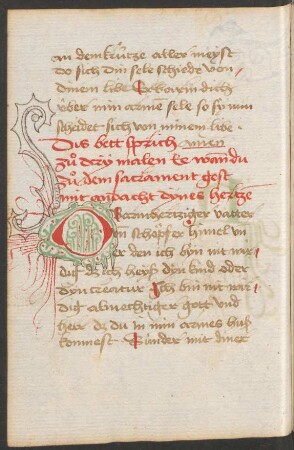 an dem krütze aller meyst
do sich din sele schiede von
dinem libe Erbarm dich
über min arme sele so sy nun
scheidet sich von minem libe
Dis bett sprich
zů dry malen e wan du
zů dem sacrament gest
mit andacht dynes hertze
O Barmhertziger vatter
schöpfer hymel un
er den ich byn nit wir
dig dz ich heyß dyn kind oder
dyn creatur Ich bin nit wir
dig almechtiger gott und
herr dz du in min armes huß
kommest Sünder mit diner